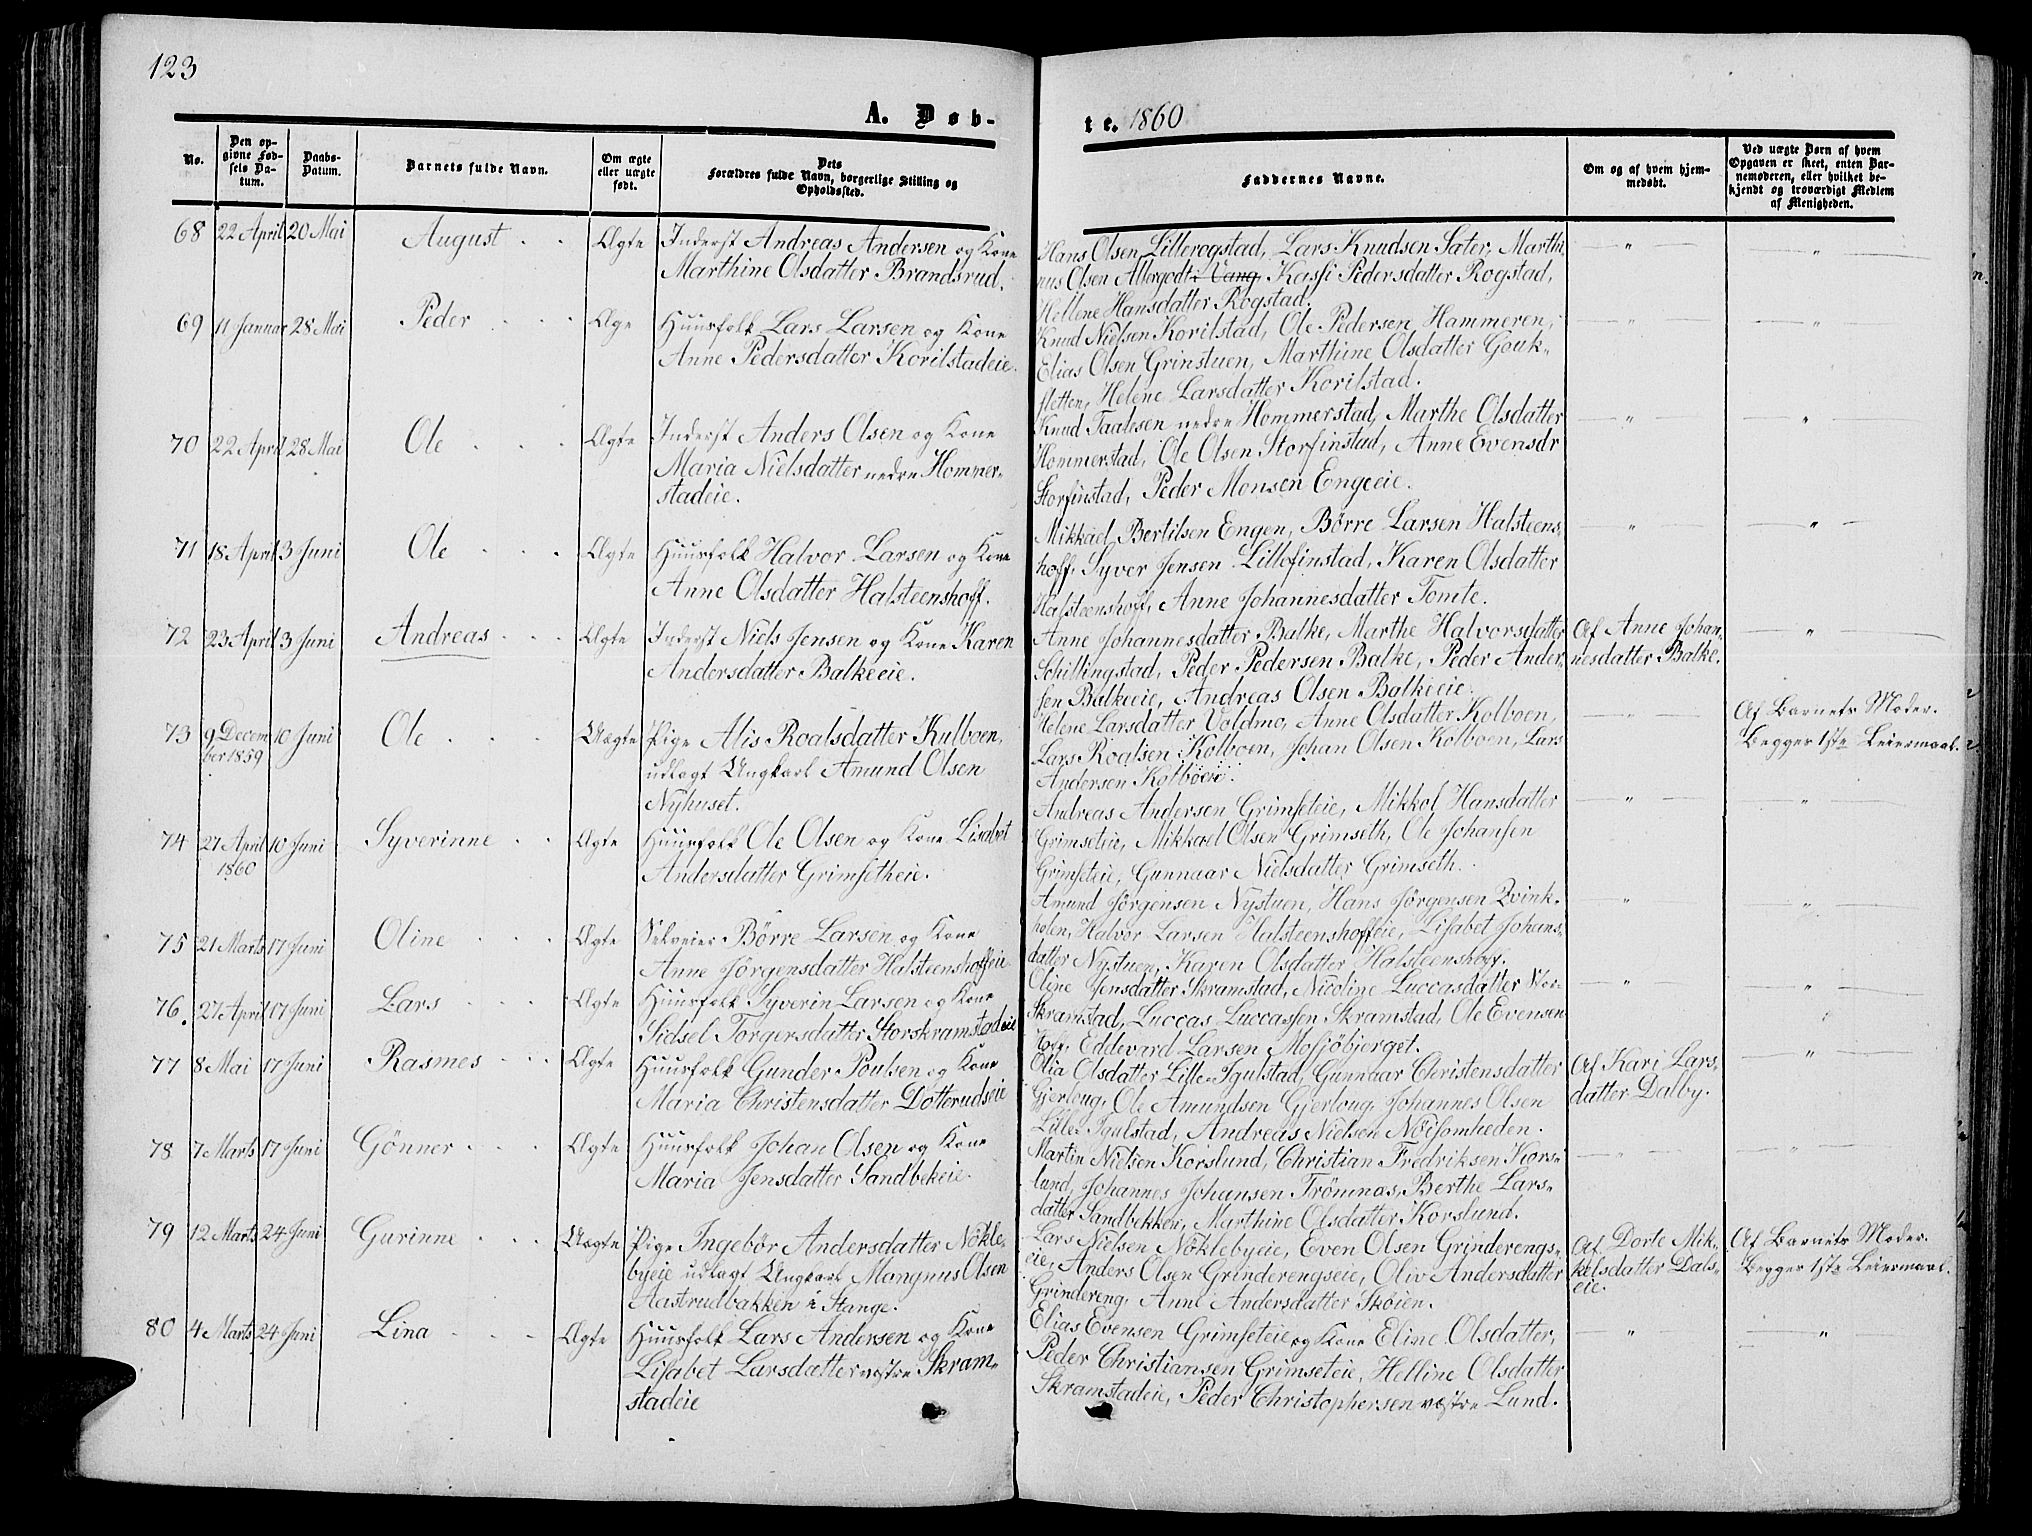 123
A. Døb-
te. 1860
No.
Den op-
givne Fød-
sels Da-
tum.
Daabs-
Datum.
Barnets fulde Navn.
Om ægte
eller uægte
født.
Dets
Forældres fulde Navn, borgerlige Stilling og
Opholdssted.
Faddernes Navne.
Om og af hvem hjem-
medøbt.
Ved uægte Børn af hvem
Opgaven er skeet, enten Bar-
nemoderen, eller hvilket be-
kjendt og troværdigt Medlem
af Menigheden.
68 22 April 20 Mai August Ægte Inderst Andreas Andersen og Kone
Marthine Olsdatter Brandsrud.
Hans Olsen Lillerogstad, Lars Knudsen Sater, Marthi-
nus Olsen Allergodt i Vang, Kassi Pedersdatter Rogstad,
Hellene Hansdatter Rogstad.
69 11 Januar 28 Mai Peder Æge Huusfolk Lars Larsen og Kone
Anne Pedersdatter Korilstadeie.
Knud Nielsen Korilstad, Ole Pedersen Hammeren,
Elias Olsen Grinstuen, Marthine Olsdatter Gouk-
stetten, Helene Larsdatter Korilstad.
70 22 April 28 Mai Ole Ægte Inderst Anders Olsen og Kone
Maria Nielsdatter nedre Hommer-
stadeie.
Knud Taalesen nedre Hommerstad, Marthe Olsdatter
Hommerstad, Ole Olsen Storfinstad, Anne Evensdr
Storfinstad, Peder Monsen Engeeie.
71 18 April 3 Juni Ole Ægte Huusfolk Halvor Larsen og Kone
Anne Olsdatter Halsteenshoff.
Mikkael Bertilsen Engen, Børre Larsen Halsteens-
hoff, Syver Jensen Lillefinstad, Karen Olsdatter
Halsteenshoff, Anne Johannesdatter Tomte.
72 23 April 3 Juni Andreas Ægte Inderst Niels Jensen og Kone Karen
Andersdatter Balkeeie.
Anne Johannesdatter Balke, Marthe Halvorsdatter
Schillingstad, Peder Pedersen Balke, Peder Ander-
sen Balkeeie, Andreas Olsen Balkeeie.
Af Anne Johan-
nesdatter Balke.
73 9 Decem 10 Juni Ole Uægte Pige Alis Roalsdatter Kulboen,
ber 1859
udlagt Ungkarl Amund Olsen
Nyhuset.
Helene Larsdatter Voldmo, Anne Olsdatter Kolboen,
Lars Roalsen Kolboen, Johan Olsen Kolboen, Lars
Andersen Kolböeie.
Af Barnets Moder.
Begges 1ste Leiermaal.
74 27 April 10 Juni Syverinne Ægte Huusfolk Ole Olsen og Kone Lisabet
1860
Andersdatter Grimsetheie.
Andreas Andersen Grimseteie, Mikkol Hansdatter
Grimseteie, Mikkael Olsen Grimseth, Ole Johansen
Grimseteie, Gunnaar Nielsdatter Grimseth.
75 21 Marts 17 Juni Oline Ægte Selveier Börre Larsen og Kone
Anne Jörgensdatter Halsteenshoffeie
Amund Jörgensen Nystuen, Hans Jörgensen Qvink-
holen, Halvor Larsen Halsteenshoffeie, Lisabet Johans-
datter Nystuen, Karen Olsdatter Halsteenshoff.
76. 27 April 17 Juni Lars Ægte Huusfolk Syverin Larsen og Kone
Sidsel Torgersdatter Storskramstadeie
Oline Jensdatter Skramstad, Nicoline Luccasdatter Stor-
Skramstad, Luccas Luccassen Skramstad, Ole Evensen
Eddevard Larsen Mosjöbjerget.
77 8 Mai 17 Juni Rasmes Ægte Huusfolk Gunder Poulsen og Kone
Maria Christensdatter Dotterudseie
Olia Olsdatter Lille-Igulstad, Gunnaar Christensdatter
Gjerloug, Ole Amundsen Gjerloug, Johannes Olsen
Lille Igulstad, Andreas Nielsen Nöisomheden.
Af Kari Lars-
datter Dalby.
78 7 Marts 17 Juni Gönner Ægte Huusfolk Johan Olsen og Kone
Maria Jensdatter Sandbekeie.
Martin Nielsen Korslund, Christian Fredriksen Kors-
lund, Johannes Johansen Trömnæs, Berthe Lars-
datter Sandbekken, Marthine Olsdatter Korslund.
79 12 Marts 24 Juni Gurinne Uægte Pige Ingebör Andersdatter Nökle-
byeie udlagt Ungkarl Mangnus Olsen
Aastrudbakken i Stange.
Lars Nielsen Nöklebyeie, Even Olsen Grinderengs-
eie, Anders Olsen Grinderengseie, Oliv Andersdatter
Grindereng, Anne Andersdatter Sköien.
Af Dorte Mik-
kelsdatter Dals-
eie.
Af Barnets Moder.
Begges 1ste Leiermaal.
80 4 Marts 24 Juni Lina Ægte Huusfolk Lars Andersen og Kone
Lisabet Larsdatter vestre Skram-
stadeie
Elias Evensen Grimseteie og Kone Eline Olsdatter,
Peder Christiansen Grimseteie, Helline Olsdatter
Skramstadeie, Peder Christophersen vestre Lund.